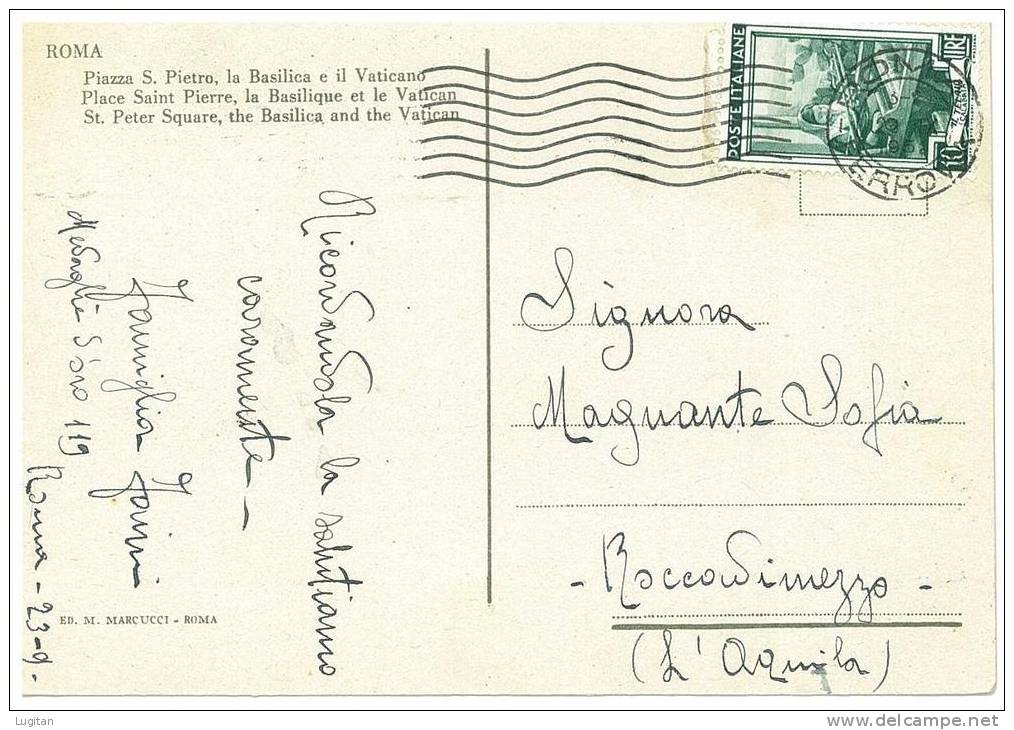 ROMA
Piazza S. Pietro, la Basilica e il Vaticano
Place Saint Pierre, la Basilique et le Vatican
St. Peter Square, the Basilica and the Vatican
POSTE ITALIANE
LIRE
10
Ricordandola la salutiamo
caramente -
Famiglia
Medaglie d'oro 119
Roma - 23-9-
ED. M. MARCUCCI - ROMA
Signora
Magnante Sofia
- Roccadimezzo -
(L'Aquila)
Lugitan
www.delcampe.net